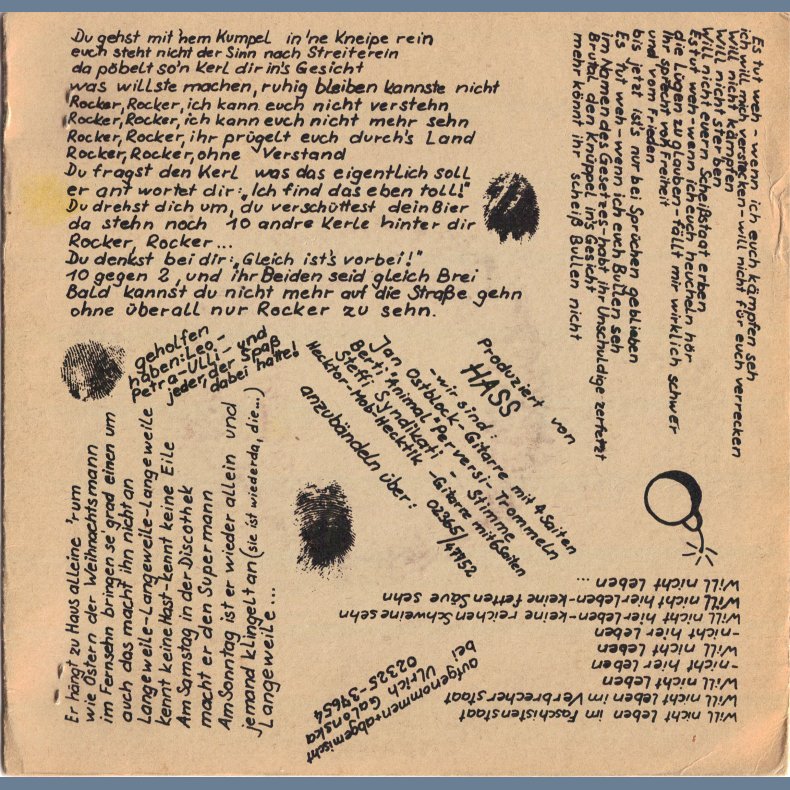 Du gehst mit 'nem Kumpel in 'ne Kneipe rein
euch steht nicht der Sinn nach Streiterein
da pöbelt so'n Kerl dir in's Gesicht
was willste machen, ruhig bleiben kannste nicht
Rocker, Rocker, ich kann euch nicht verstehn
Rocker, Rocker, ich kann euch nicht mehr sehn
Rocker, Rocker, ihr prügelt euch durch's Land
Rocker, Rocker, ohne Verstand
Du fragst den Kerl was das eigentlich soll
er antwortet dir: „Ich find das eben toll!"
Du drehst dich um, du verschüttest dein Bier
da stehn noch 10 andre Kerle hinter dir
Rocker, Rocker...
Du denkst bei dir: „Gleich ist's vorbei!"
10 gegen 2, und ihr Beiden seid gleich Brei
Bald kannst du nicht mehr auf die Straße gehn
ohne überall nur Rocker zu sehn.
Es tut weh - wenn ich euch kämpfen seh
ich will mich verstecken - will nicht für euch verrecken
Will nicht kämpfen
Will nicht sterben
Will nicht euern Scheißstaat erben
Es tut weh - wenn ich euch heucheln hör
die Lügen zu glauben - fällt mir wirklich schwer
Ihr sprecht von Freiheit
und vom Frieden
bis jetzt ist's nur bei Sprüchen geblieben
Es tut weh - wenn ich euch Bullen seh
im Namen des Gesetzes - habt ihr Unschuldige zerfetzt
Brutal den Knüppel in's Gesicht
mehr könnt ihr scheiß Bullen nicht
geholfen
haben: Leo-
Petra-Ulli- und
jeder, der Spaß
dabei hatte!
Produziert von
HASS
- wir sind:
Jan Ostblock - Gitarre mit 4 Saiten
Berti "Animal" Perversi - Trommeln
Steffi Syndikati - Stimme
Hecktor-Mob-Hecktik - Gitarre mit 6 Saiten
anzubändeln über: 02365/47952
Er hängt zu Haus alleine 'rum
wie Ostern der Weihnachtsmann
im Fernsehn bringen se grad einen um
auch das macht ihn nicht an
Langeweile-Langeweile-Langeweile
kennt keine Hast - kennt keine Eile
Am Samstag in der Discothek
macht er den Supermann
Am Sonntag ist er wieder allein und
jemand klingelt an (sie ist wieder da, die...)
Langeweile...
aufgenommen + abgemischt
bei Ulrich Galonska
02325-37654
Will nicht leben im Faschistenstaat
Will nicht leben im Verbrecherstaat
Will nicht leben
-nicht hier leben
Will nicht leben
-nicht hier leben
Will nicht hier leben - keine reichen Schweine sehn
Will nicht hier leben - keine fetten Säue sehn
Will nicht leben ...